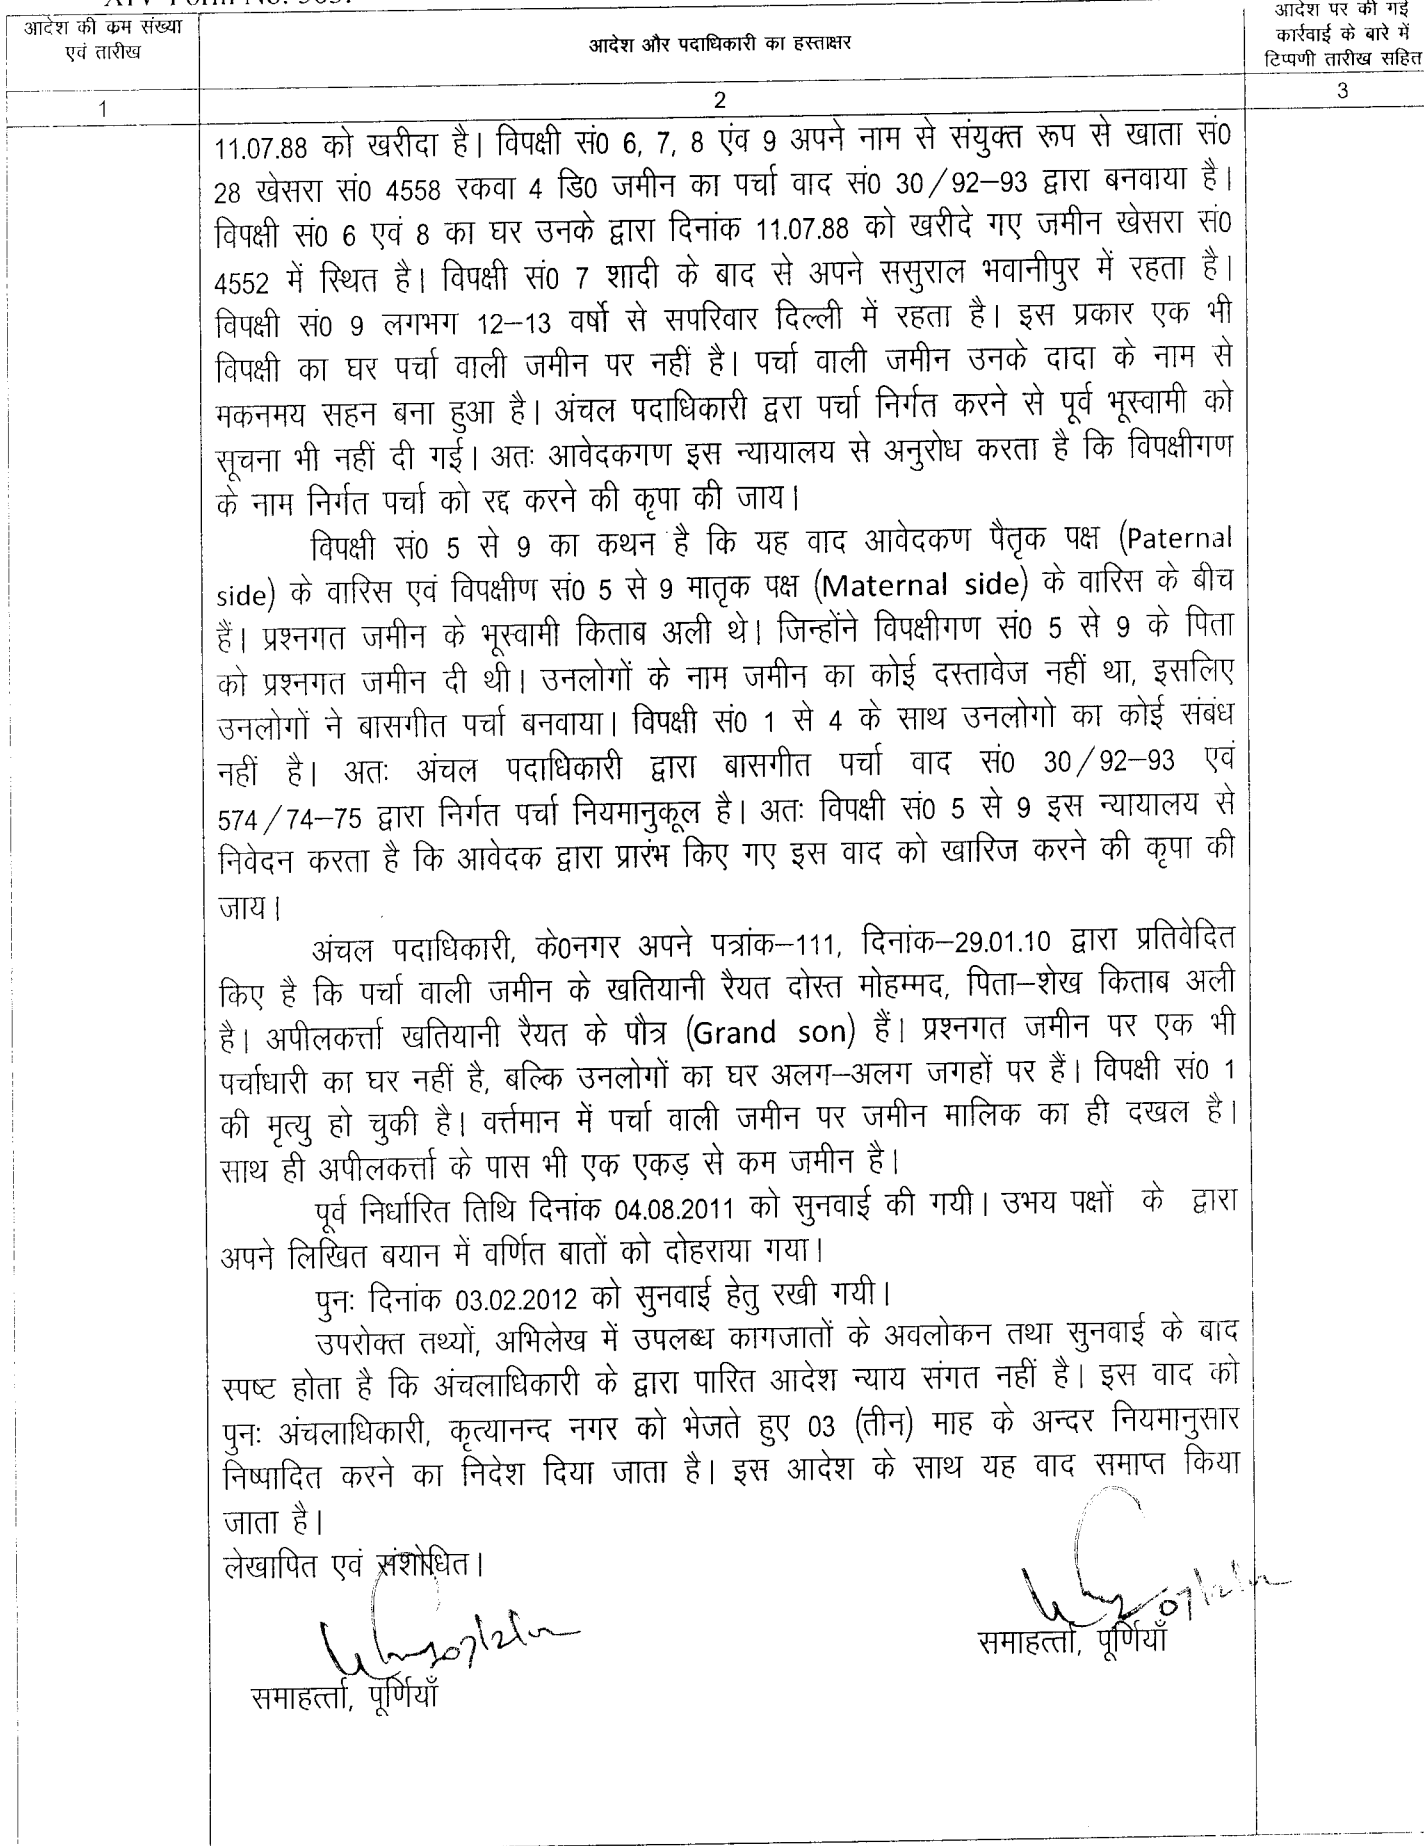 आदेश की कम संख्या
एवं तारीख
आदेश और पदाधिकारी का हस्ताक्षर
आदेश पर की गई
कार्रवाई के बारे में
टिप्पणी तारीख सहित
1
2
3
11.07.88 को खरीदा है। विपक्षी सं0 6, 7, 8 एंव 9 अपने नाम से संयुक्त रूप से खाता सं0
28 खेसरा सं0 4558 रकवा 4 डि0 जमीन का पर्चा वाद सं0 30/92–93 द्वारा बनवाया है।
विपक्षी सं0 6 एवं 8 का घर उनके द्वारा दिनांक 11.07.88 को खरीदे गए जमीन खेसरा सं0
4552 में स्थित है। विपक्षी सं0 7 शादी के बाद से अपने ससुराल भवानीपुर में रहता है।
विपक्षी सं0 9 लगभग 12–13 वर्षो से सपरिवार दिल्ली में रहता है। इस प्रकार एक भी
विपक्षी का घर पर्चा वाली जमीन पर नहीं है। पर्चा वाली जमीन उनके दादा के नाम से
मकनमय सहन बना हुआ है। अंचल पदाधिकारी द्वरा पर्चा निर्गत करने से पूर्व भूस्वामी को
सूचना भी नहीं दी गई। अतः आवेदकगण इस न्यायालय से अनुरोध करता है कि विपक्षीगण
के नाम निर्गत पर्चा को रद्द करने की कृपा की जाय।
विपक्षी सं0 5 से 9 का कथन है कि यह वाद आवेदकण पैतृक पक्ष (Paternal
side) के वारिस एवं विपक्षीण सं0 5 से 9 मातृक पक्ष (Maternal side) के वारिस के बीच
हैं। प्रश्नगत जमीन के भूस्वामी किताब अली थे। जिन्होंने विपक्षीगण सं0 5 से 9 के पिता
को प्रश्नगत जमीन दी थी। उनलोगों के नाम जमीन का कोई दस्तावेज नहीं था, इसलिए
उनलोगों ने बासगीत पर्चा बनवाया। विपक्षी सं0 1 से 4 के साथ उनलोगो का कोई संबंध
नहीं है। अतः अंचल पदाधिकारी द्वारा बासगीत पर्चा वाद सं0 30/92–93 एवं
574/74–75 द्वारा निर्गत पर्चा नियमानुकूल है। अतः विपक्षी सं0 5 से 9 इस न्यायालय से
निवेदन करता है कि आवेदक द्वारा प्रारंभ किए गए इस वाद को खारिज करने की कृपा की
जाय।
अंचल पदाधिकारी, के0नगर अपने पत्रांक–111, दिनांक–29.01.10 द्वारा प्रतिवेदित
किए है कि पर्चा वाली जमीन के खतियानी रैयत दोस्त मोहम्मद, पिता–शेख किताब अली
है। अपीलकर्त्ता खतियानी रैयत के पौत्र (Grand son) हैं। प्रश्नगत जमीन पर एक भी
पर्चाधारी का घर नहीं है, बल्कि उनलोगों का घर अलग–अलग जगहों पर हैं। विपक्षी सं0 1
की मृत्यु हो चुकी है। वर्त्तमान में पर्चा वाली जमीन पर जमीन मालिक का ही दखल है।
साथ ही अपीलकर्त्ता के पास भी एक एकड़ से कम जमीन है।
पूर्व निर्धारित तिथि दिनांक 04.08.2011 को सुनवाई की गयी। उभय पक्षों के द्वारा
अपने लिखित बयान में वर्णित बातों को दोहराया गया।
पुनः दिनांक 03.02.2012 को सुनवाई हेतु रखी गयी।
उपरोक्त तथ्यों, अभिलेख में उपलब्ध कागजातों के अवलोकन तथा सुनवाई के बाद
स्पष्ट होता है कि अंचलाधिकारी के द्वारा पारित आदेश न्याय संगत नहीं है। इस वाद को
पुनः अंचलाधिकारी, कृत्यानन्द नगर को भेजते हुए 03 (तीन) माह के अन्दर नियमानुसार
निष्पादित करने का निदेश दिया जाता है। इस आदेश के साथ यह वाद समाप्त किया
जाता है।
लेखापित एवं संशोधित।
समाहर्त्ता, पूर्णियाँ
समाहर्त्ता, पूर्णियाँ